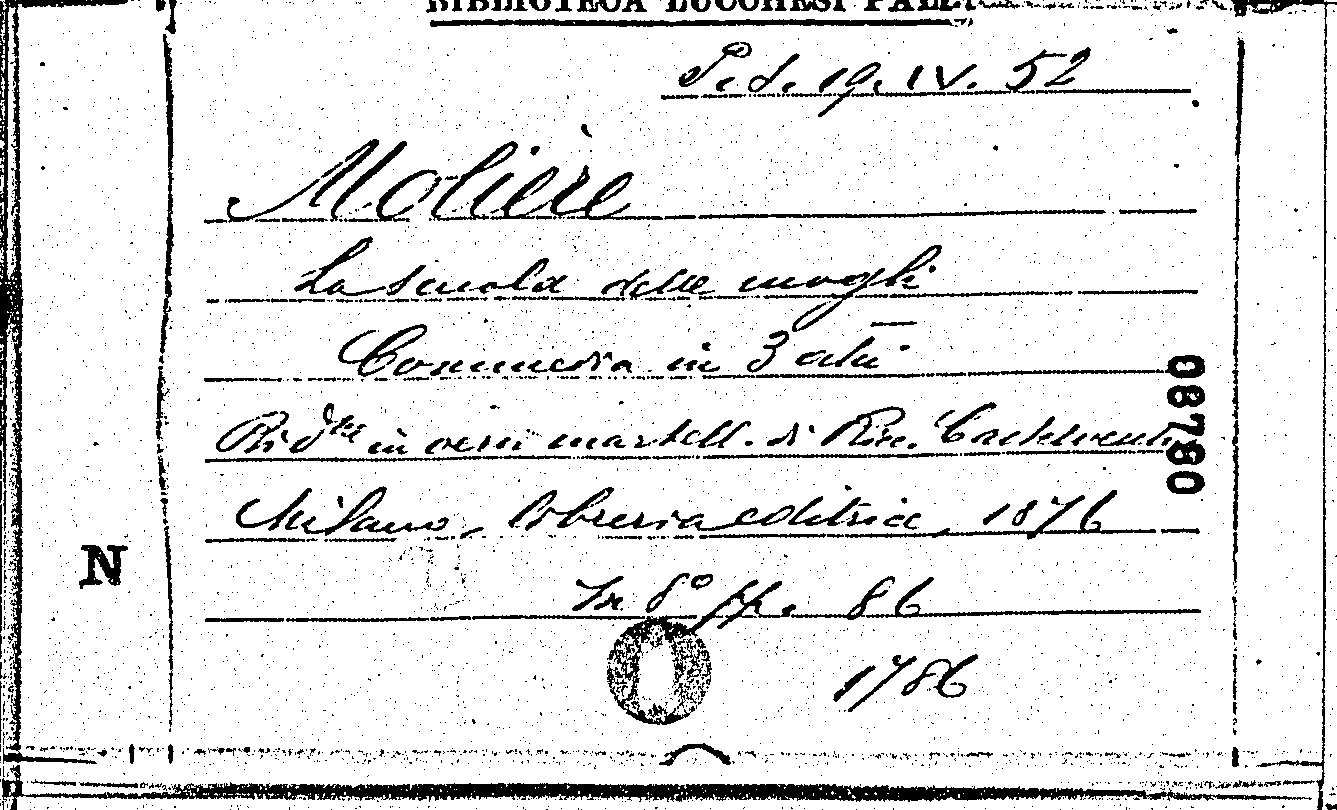 BIBLIOTECA LUCCHESI PALLI
P. d. 19. IV. 52
Molière
La scuola delle mogli
Commedia in 3 atti
Rid.ne in versi martell. di Ric. Castelvecchio
Milano, libreria editrice, 1876
In 8° pp. 86
1786
N
08780